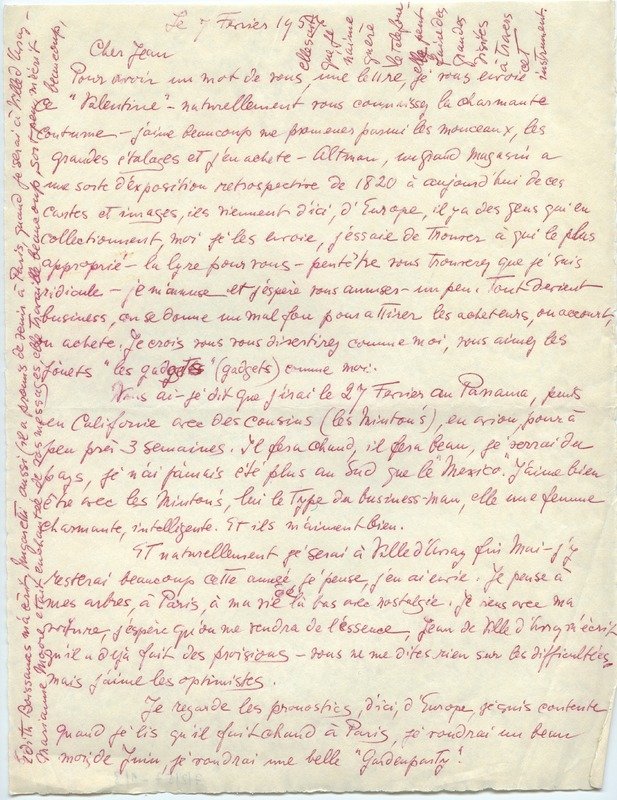 le 7 Fevrier 195
Cher Jean
Pour avoir un mot de vous, une lettre, je vous envoie
ce "Valentine" - naturellement vous connaissez la charmante
coutume - j'aime beaucoup me promener parmi les monceaux, les
grandes étalages et j'en achete - Altman, un grand magasin a
une sorte d'exposition retrospective de 1820 à aujourd'hui de ces
cartes et images, ils viennent d'ici, d'Europe, il y a des gens qui en
collectionnent, moi je les envoie, j'essaie de trouver à qui le plus
approprié - la lyre pour vous - peutêtre vous trouverez que je suis
ridicule - je m'amuse et j'espère vous amuser - un peu. Tout devient
business, on se donne un mal fou pour attirer les acheteurs, on accourt,
on achete. Je crois vous vous divertirez comme moi, vous aimez les
jouets "les gadgets" (gadgets) comme moi.
Vous ai-je dit que j'irai le 27 Fevrier au Panama, puis
en Californie avec des cousins (les Minton's), en avion, pour à
peu près 3 semaines. Il fera chaud, il fera beau, je verrai du
pays, je n'ai jamais été plus au Sud que le "Mexico". J'aime bien
être avec les Minton's, lui le type du business-man, elle une femme
charmante, intelligente. Et ils m'aiment bien.
Et naturellement je serai à Ville d'Avray fin Mai - j'y
resterai beaucoup cette année, je pense, j'en ai envie. Je pense à
mes arbres, à Paris, à ma vie de là bas avec nostalgie. Je viens avec ma
voiture, j'espère qu'on me vendra de l'essence, Jean de Ville d'Avray m'écrit
qu'il a déjà fait des provisions - vous ne me dites rien sur les difficultées,
mais j'aime les optimistes.
Je regarde les pronostics, d'ici, d'Europe, je suis contente
quand je lis qu'il fait chaud à Paris, je voudrai un beau
mois de Juin, je voudrai une belle "Gardenparty".
Edith Boissonnas m'a écrit, aussi, il a promis de venir à Paris, quand je serai à Ville d'Avray -
Marianne Moore était enchantée de vos messages, elle travaille beaucoup, sort peu, m'écrit
beaucoup,
elle sait
que je
n'aime
guère
le telefone
elle peut
faire des
grandes
visites
à travers
cet
instrument.